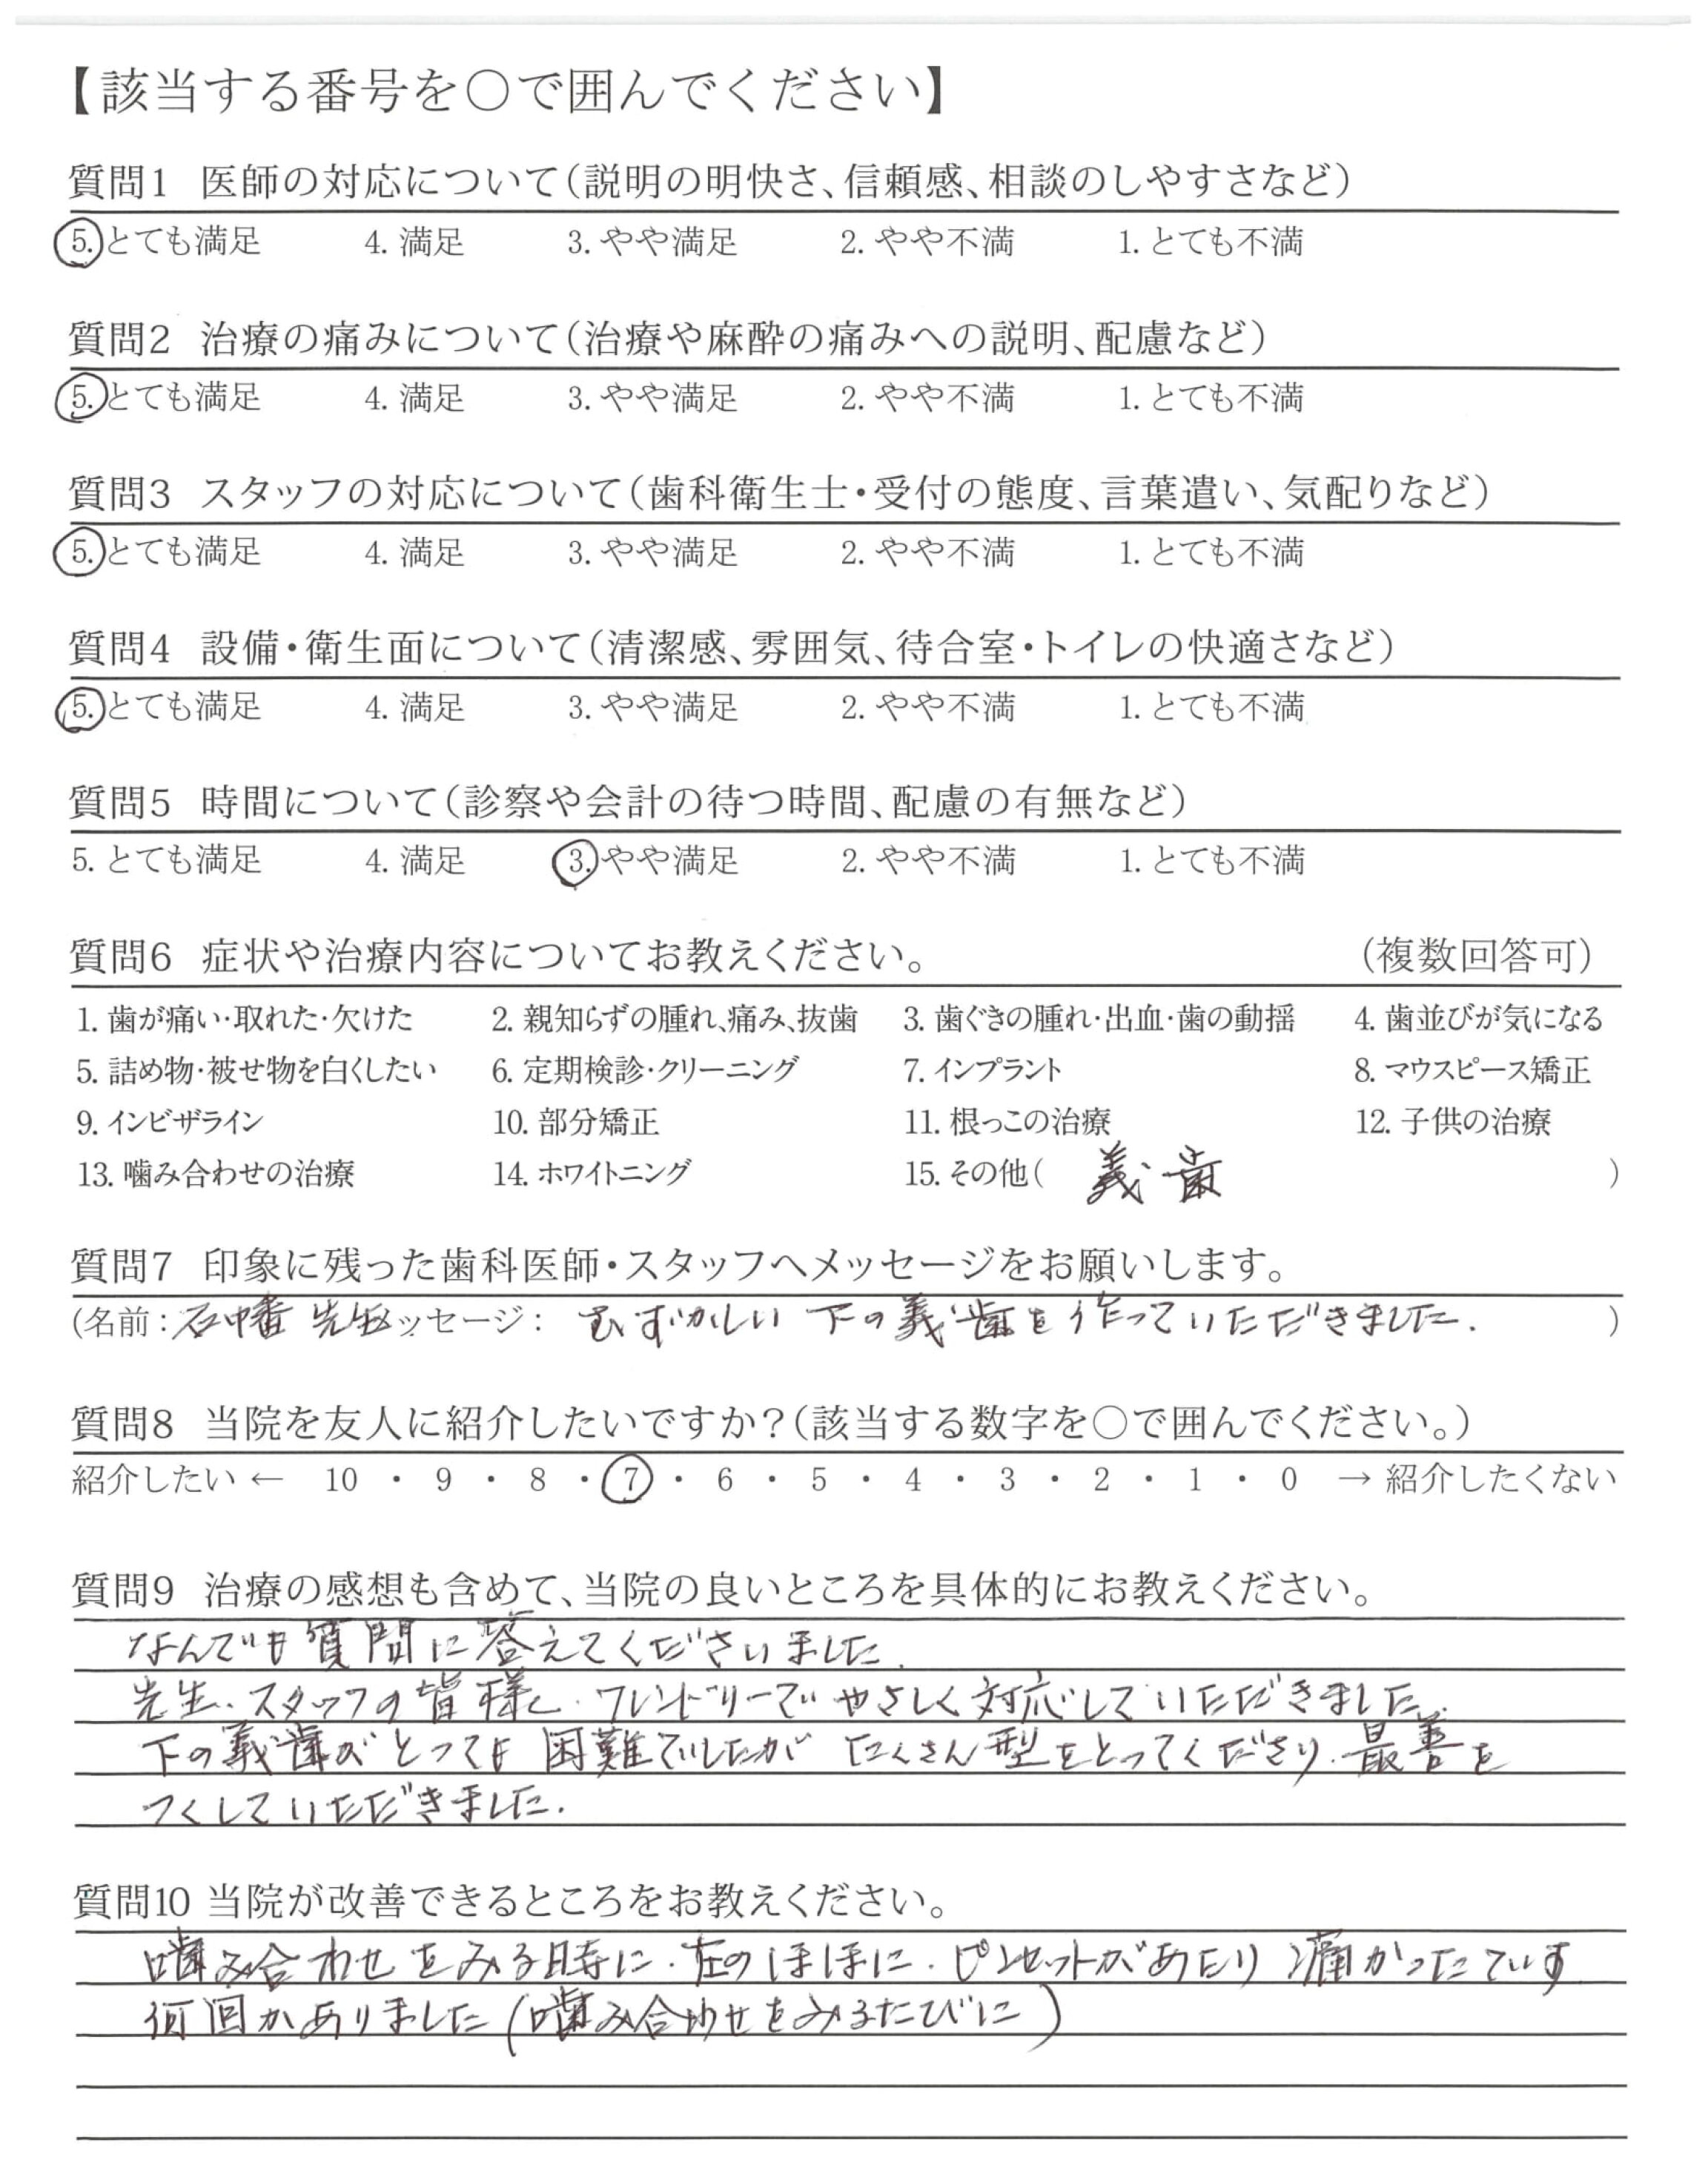 【該当する番号を○で囲んでください】
質問1 医師の対応について(説明の明快さ、信頼感、相談のしやすさなど)
5. とても満足 4. 満足 3. やや満足 2. やや不満 1. とても不満
質問2 治療の痛みについて(治療や麻酔の痛みへの説明、配慮など)
5. とても満足 4. 満足 3. やや満足 2. やや不満 1. とても不満
質問3 スタッフの対応について(歯科衛生士・受付の態度、言葉遣い、気配りなど)
5. とても満足 4. 満足 3. やや満足 2. やや不満 1. とても不満
質問4 設備・衛生面について(清潔感、雰囲気、待合室・トイレの快適さなど)
5. とても満足 4. 満足 3. やや満足 2. やや不満 1. とても不満
質問5 時間について(診察や会計の待つ時間、配慮の有無など)
5. とても満足 4. 満足 3. やや満足 2. やや不満 1. とても不満
質問6 症状や治療内容についてお教えください。 (複数回答可)
1. 歯が痛い・取れた・欠けた 2. 親知らずの腫れ、痛み、抜歯 3. 歯ぐきの腫れ・出血・歯の動揺 4. 歯並びが気になる
5. 詰め物・被せ物を白くしたい 6. 定期検診・クリーニング 7. インプラント 8. マウスピース矯正
9. インビザライン 10. 部分矯正 11. 根っこの治療 12. 子供の治療
13. 噛み合わせの治療 14. ホワイトニング 15. その他( 義歯 )
質問7 印象に残った歯科医師・スタッフへメッセージをお願いします。
(名前:石幡 先生 メッセージ: むずかしい 下の義歯を作っていただきました. )
質問8 当院を友人に紹介したいですか?(該当する数字を○で囲んでください。)
紹介したい ← 10 ・ 9 ・ 8 ・ 7 ・ 6 ・ 5 ・ 4 ・ 3 ・ 2 ・ 1 ・ 0 → 紹介したくない
質問9 治療の感想も含めて、当院の良いところを具体的にお教えください。
なんでも質問に答えてくださいました.
先生、スタッフの皆様 フレンドリーでやさしく対応していただきました.
下の義歯がとっても困難でしたが たくさん型をとってくださり、最善を
つくしていただきました.
質問10 当院が改善できるところをお教えください。
噛み合わせをみる時に、左のほほに、ピンセットがあたり 痛かったです
何回かありました(噛み合わせをみるたびに)